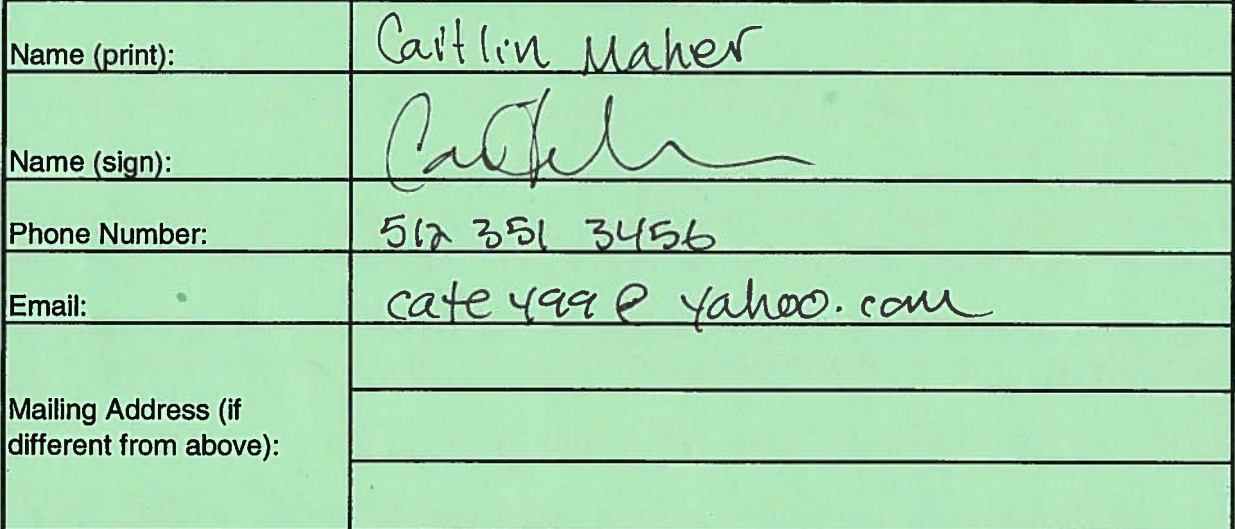 Name (print): Caitlin Maher
Name (sign):
Phone Number: 512 351 3456
Email: cate499@yahoo.com
Mailing Address (if
different from above):